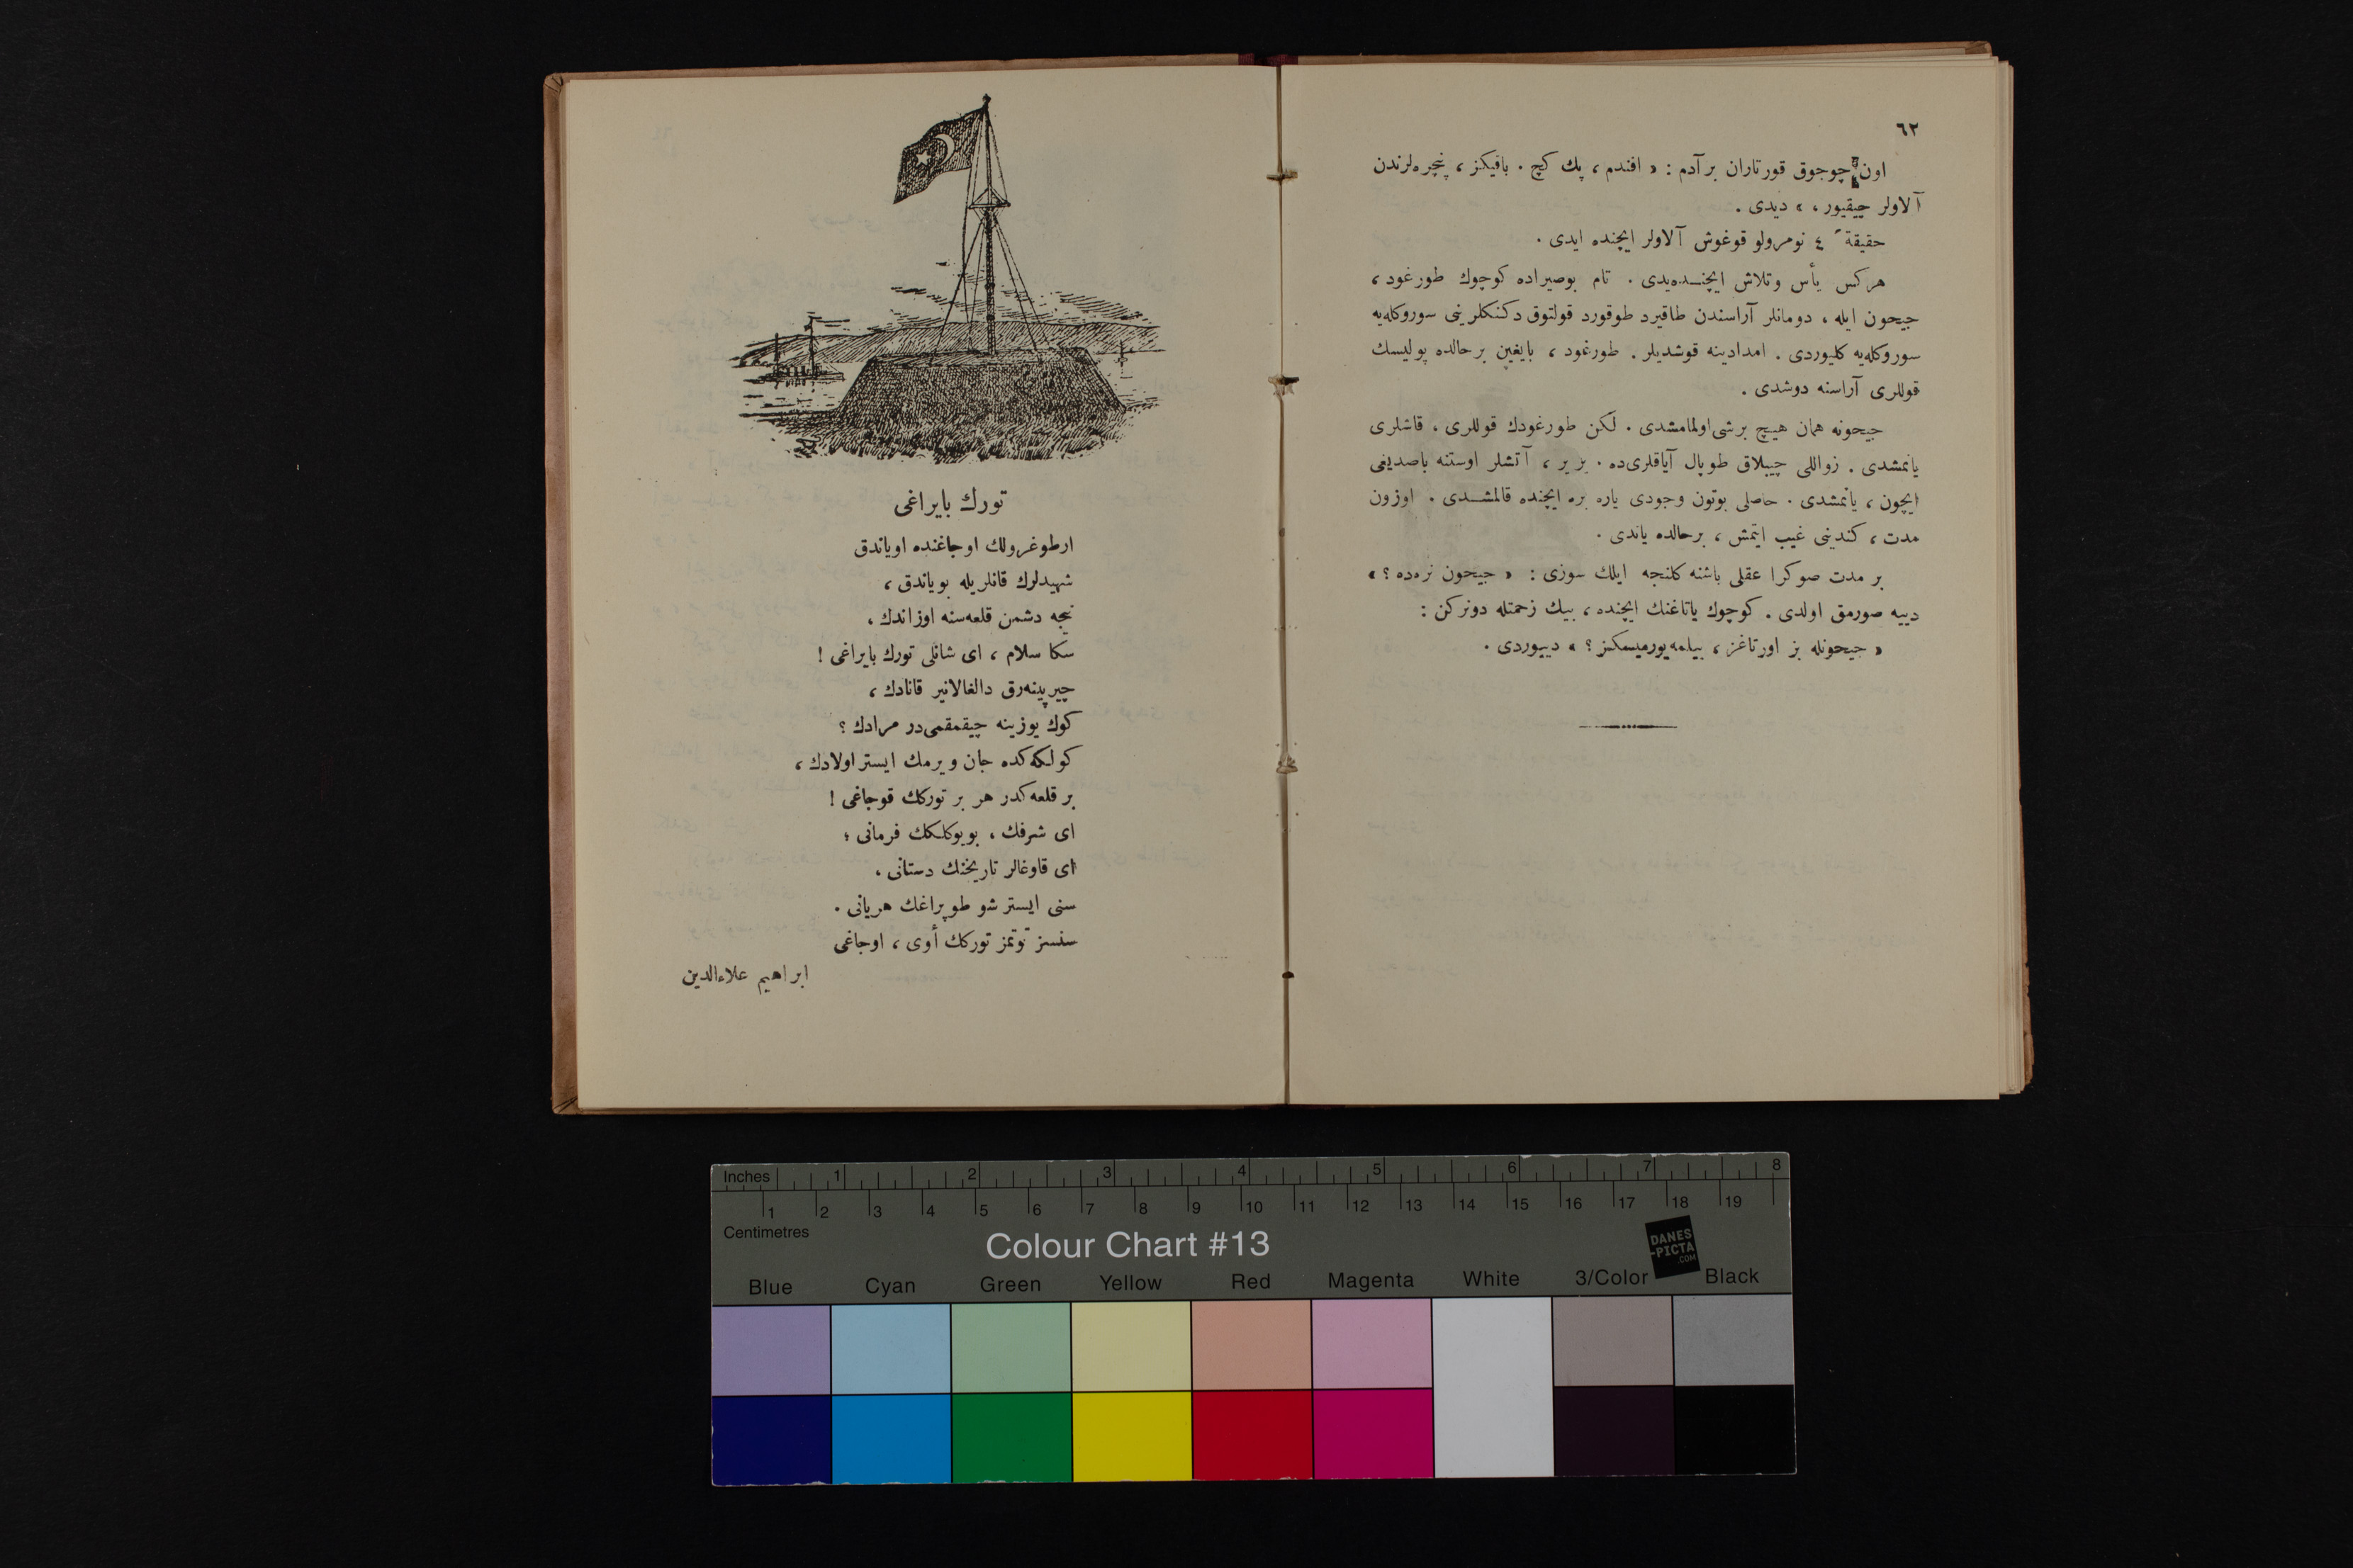 ٦٢
اون چوجوق قورتاران بر آدم : « افندم ، پك كچ . باقيكز ، پنجره‌لرندن
آلاولر چيقيور ، » ديدى .
حقيقةً ٤ نومرولو قوغوش آلاولر ايچنده ايدى .
هركس يأس وتلاش ايچنده‌يدى . تام بوصيراده كوچوك طورغود ،
جيحون ايله ، دومانلر آراسندن طاقيرد طوقورد قولتوق دكنكلرينى سوروكله‌يه
سوروكله‌يه كليوردى . امدادينه قوشديلر . طورغود ، بايغين برحالده پوليسك
قوللرى آراسنه دوشدى .
جيحونه همان هيچ برشى اولمامشدى . لكن طورغودك قوللرى ، قاشلرى
يانمشدى . زواللى چيپلاق طوپال آياقلرى‌ده . ير ير ، آتشلر اوستنه باصديغى
ايچون ، يانمشدى . حاصلى بوتون وجودى ياره بره ايچنده قالمشدى . اوزون
مدت ، كندينى غيب ايتمش ، برحالده ياتدى .
بر مدت صوكرا عقلى باشنه كلنجه ايلك سوزى : « جيحون نره‌ده ؟ »
دييه صورمق اولدى . كوچوك ياتاغنك ايچنده ، بيك زحمتله دونركن :
« جيحونله بز اورتاغز ، بيلمه‌يورميسكز ؟ » دييوردى .
تورك بايراغى
ارطوغرولك اوجاغنده اوياندق
شهيدلرك قانلريله بوياندق ،
نيجه دشمن قلعه‌سنه اوزاندك ،
سكا سلام ، اى شانلى تورك بايراغى !
چيرپينه‌رق دالغالانير قانادك ،
كوك يوزينه چيقمقمى‌در مرادك ؟
كولكه‌كده جان ويرمك ايستر اولادك ،
بر قلعه‌كدر هر بر توركك قوجاغى !
اى شرفك ، بويوكلككك فرمانى ؛
اى قاوغالر تاريخنك دستانى ،
سنى ايستر شو طوپراغك هريانى .
سنسز توتمز توركك أوى ، اوجاغى
ابراهيم علاءالدين
Inches 1 2 3 4 5 6 7 8
1 2 3 4 5 6 7 8 9 10 11 12 13 14 15 16 17 18 19
Centimetres
Colour Chart #13
DANES
-PICTA
.COM
Blue Cyan Green Yellow Red Magenta White 3/Color Black